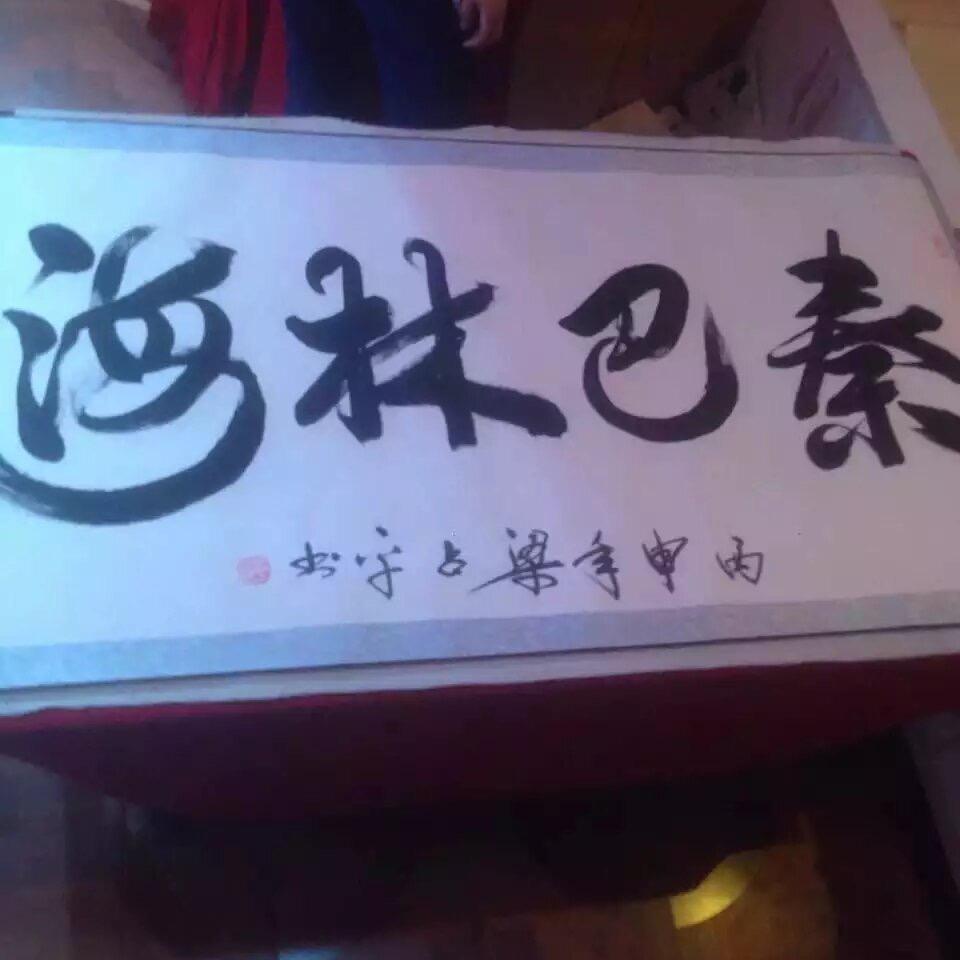 秦巴林海
丙申年梁占平书